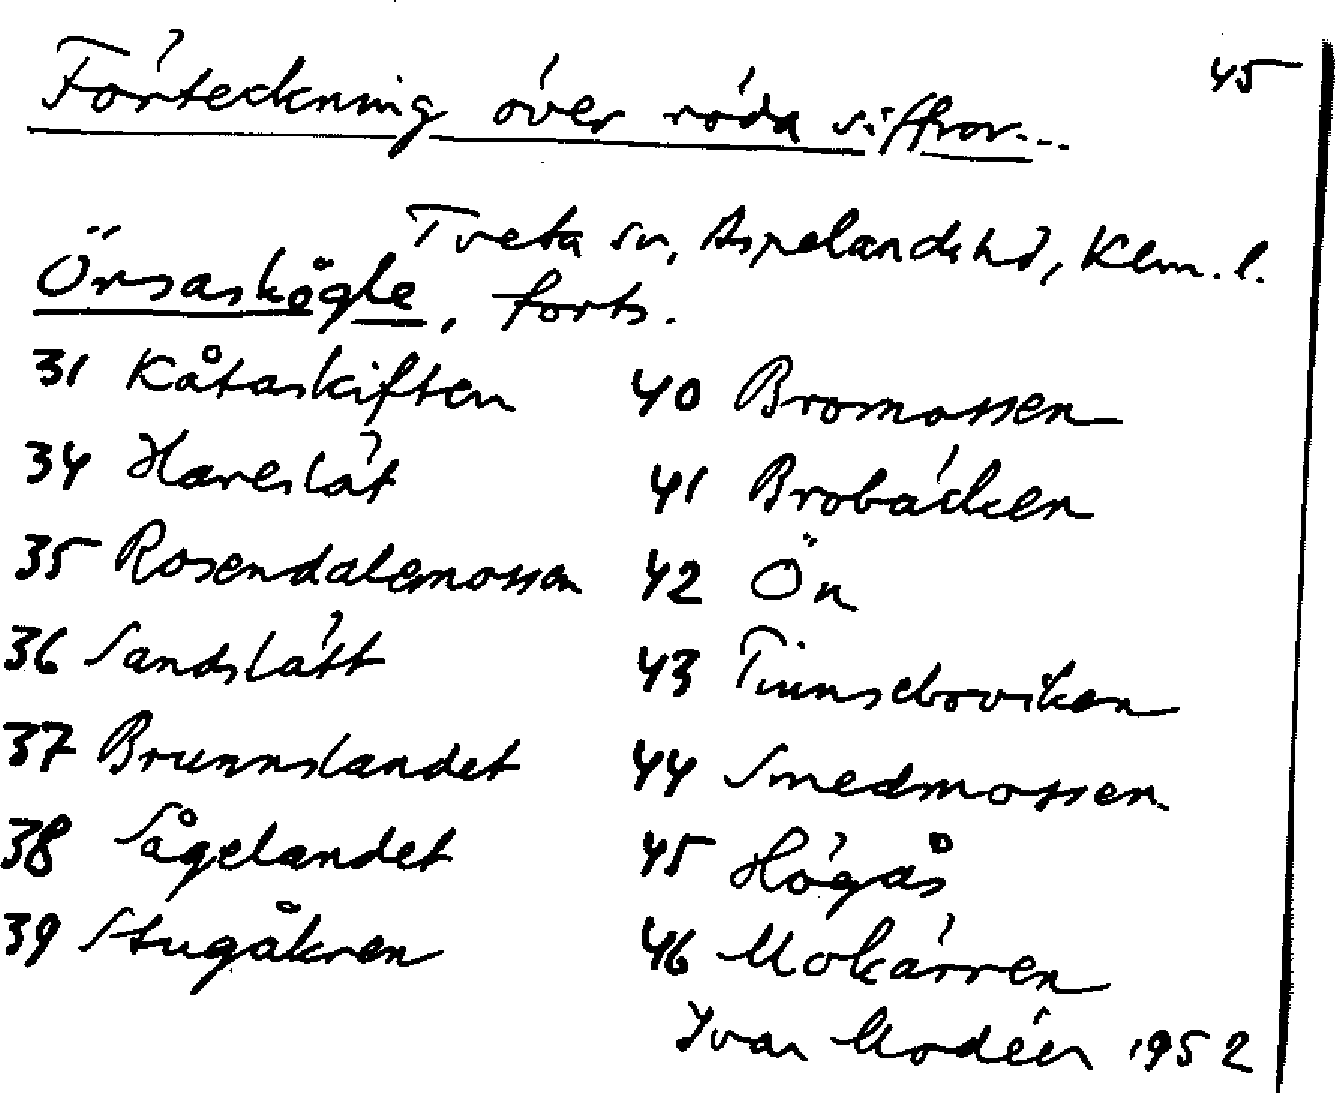 Förteckning över röda siffror... 45
Tveta sn, Aspelands hd, Klm. l.
Örsaskögle, forts.
31 Kåtaskiften
34 Hareslät
35 Rosendalemossen
36 Sandslätt
37 Brunnslandet
38 Sågelandet
39 Stugåkren
40 Bromossen
41 Brobäcken
42 Ön
43 Tinnseboviken
44 Smedmossen
45 Högås
46 Mokärren
Ivar Modéer 1952